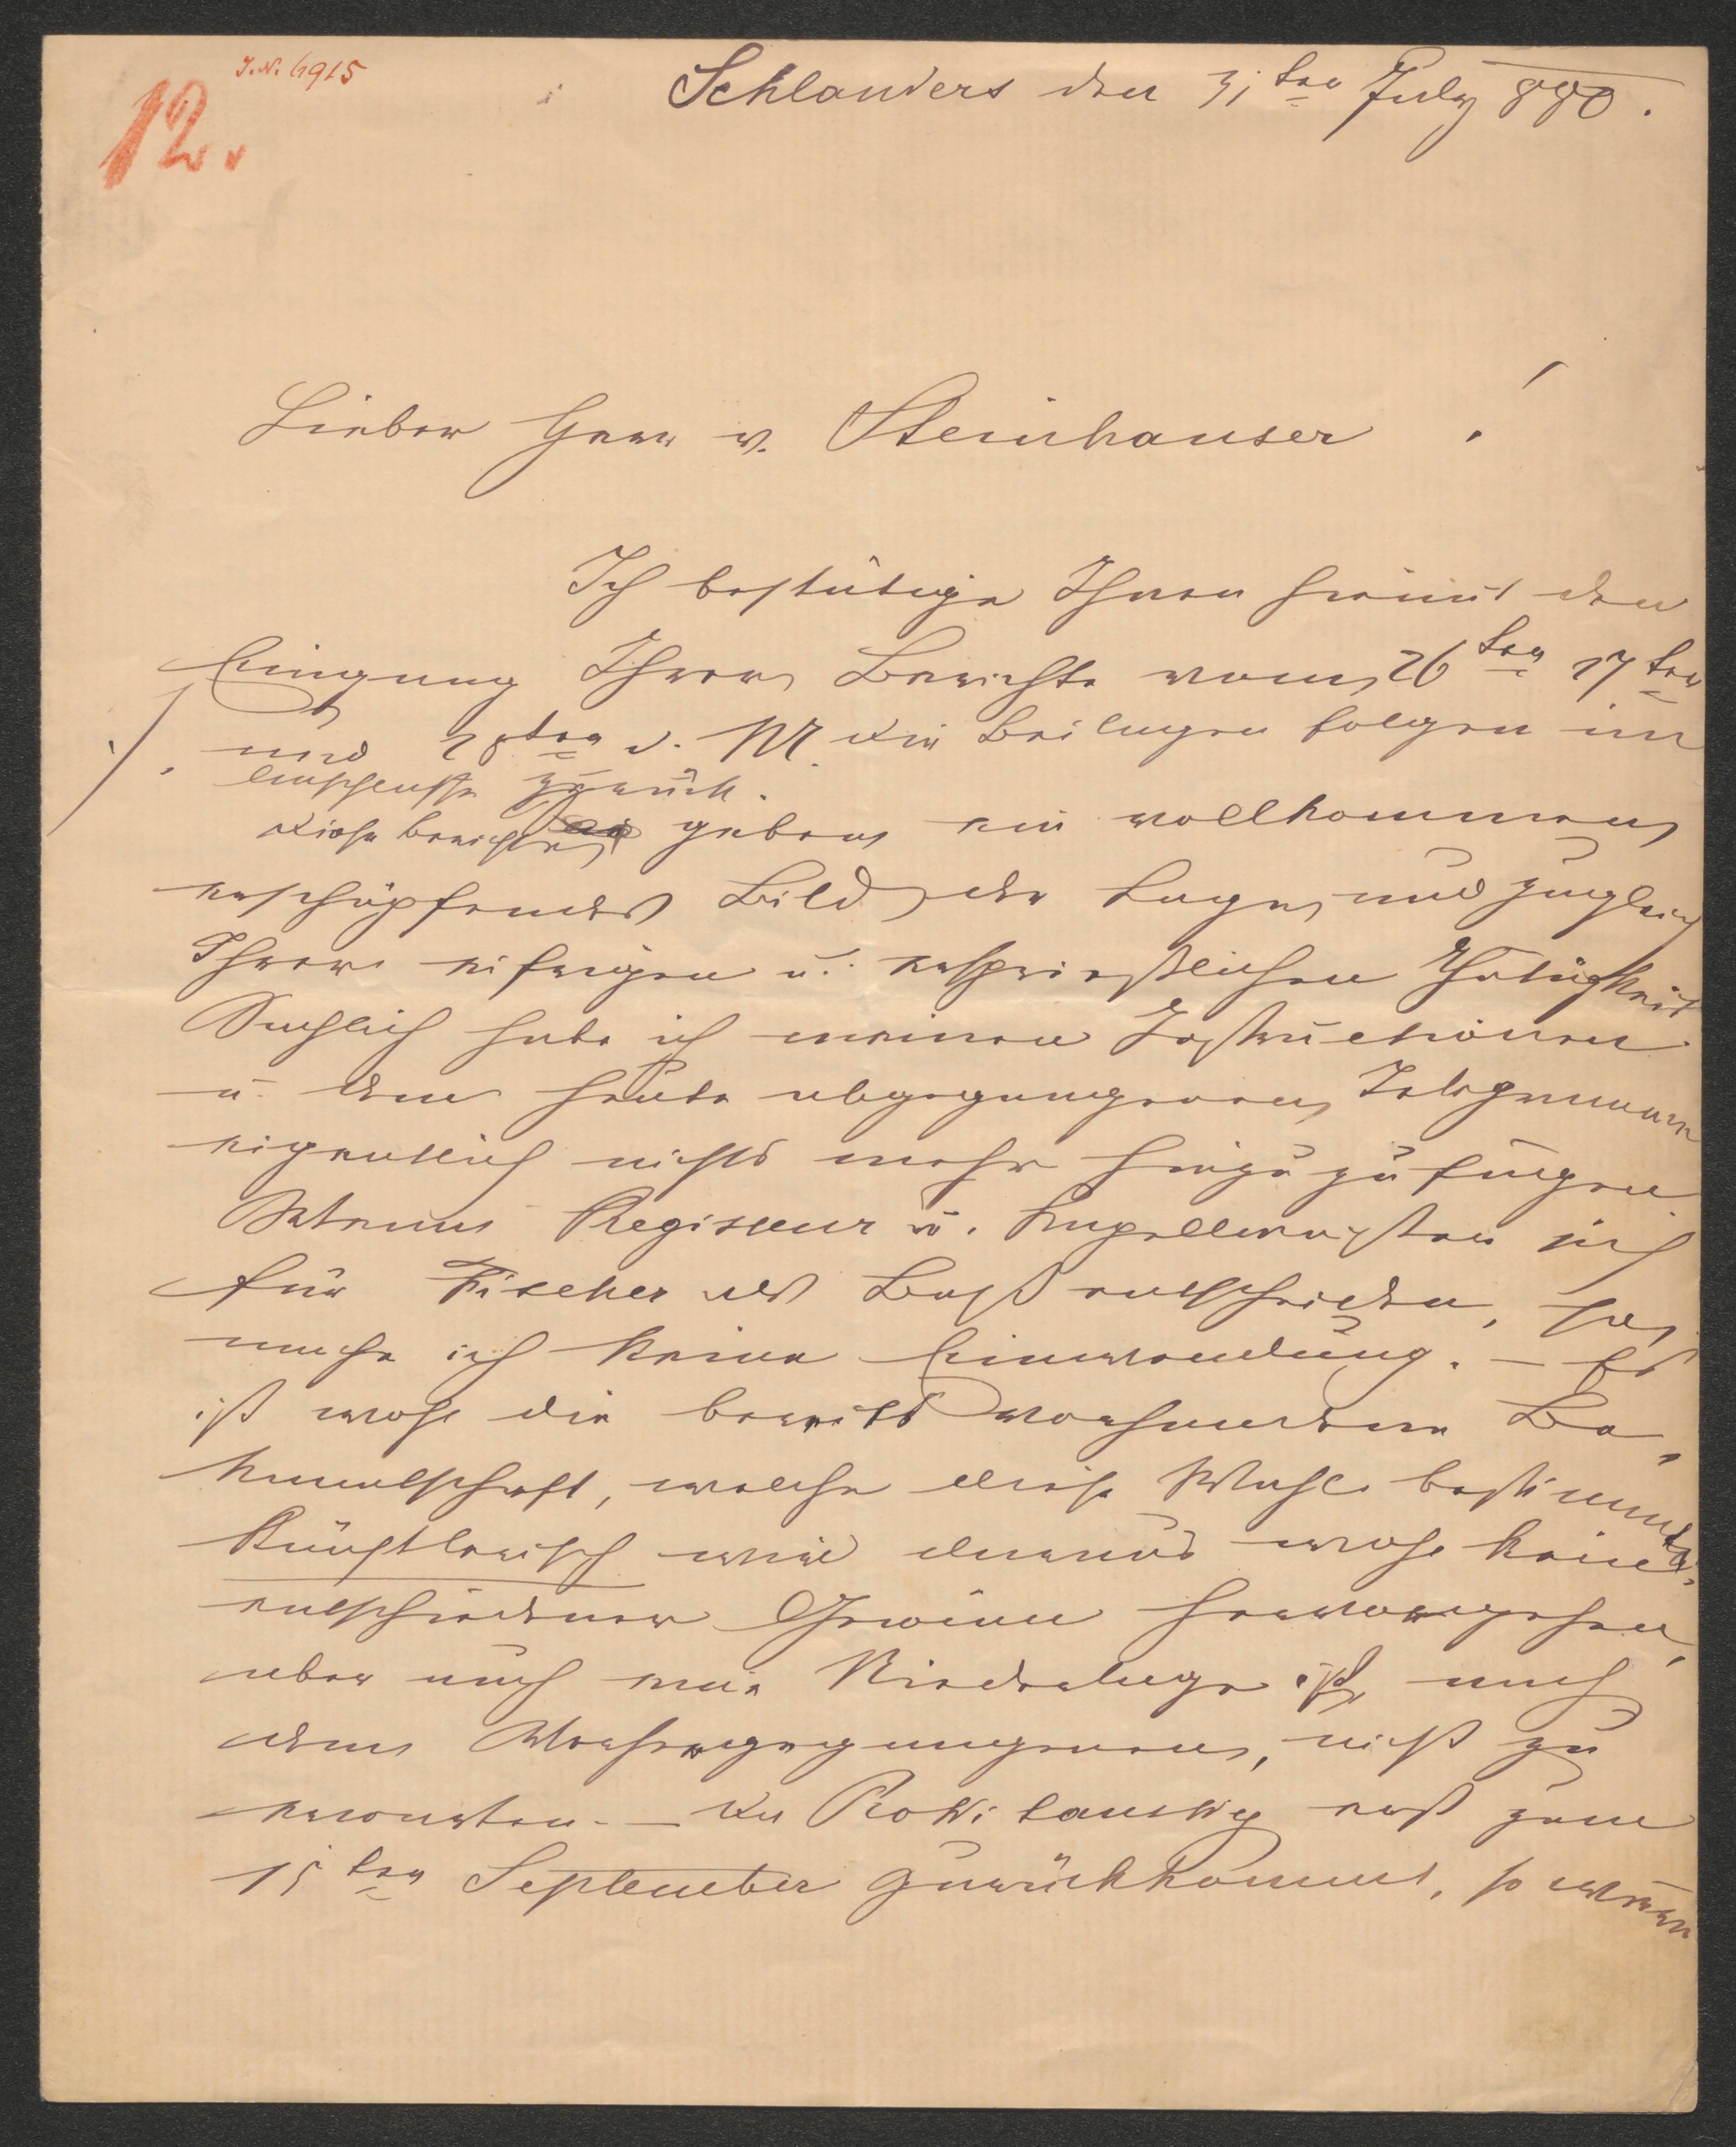 J.N. 6915
12.
Schlanders den 31ten July 880.
Lieber Herr v. Steinhauser!
Ich bestätige Ihnen hiemit den
Eingang Ihrer Berichte vom 26ten 27ten
und 28ten d. M. die Beilagen folgen im
Einschlusse zurück.
Diese Berichte geben ein vollkommen
erschöpfendes Bild der Lage und zugleich
Ihrer eifrigen u. ersprießlichen Thätigkeit
Sachlich habe ich meinen Instructionen
u. dem heute abgegangenen Telegramme
eigentlich nichts mehr hinzu zu fügen
Wenn Regisseur u. Kapellmeister sich
für Fischer als Baß entscheiden, so
mache ich keine Einwendung. — Es
ist wohl die bereits vorhandene Be-
kanntschaft, welche diese Wahl bestimmte.
Künstlerisch wird daraus wohl kein
entschiedener Gewinn hervorgehen,
aber auch eine Niederlage ist, nach
dem Vorhergegangenen, nicht zu
erwarten. — Da Rokitansky erst zum
15ten September zurückkommt, so wäre